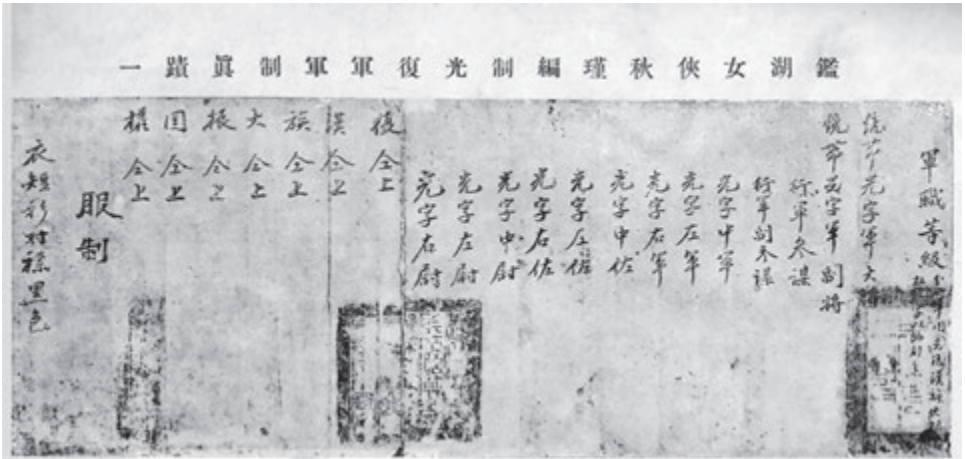 鑑湖女俠秋瑾編制光復軍軍制眞蹟一
軍職等級
統帶光字軍大將
統帶光字軍副將
行軍參謀
行軍副參謀
光字中軍
光字左軍
光字右軍
光字中佐
光字左佐
光字右佐
光字中尉
光字左尉
光字右尉
復 仝上
漢 仝上
族 仝上
大 仝上
振 仝上
国 仝上
權 仝上
服制
衣短衫对襟黑色